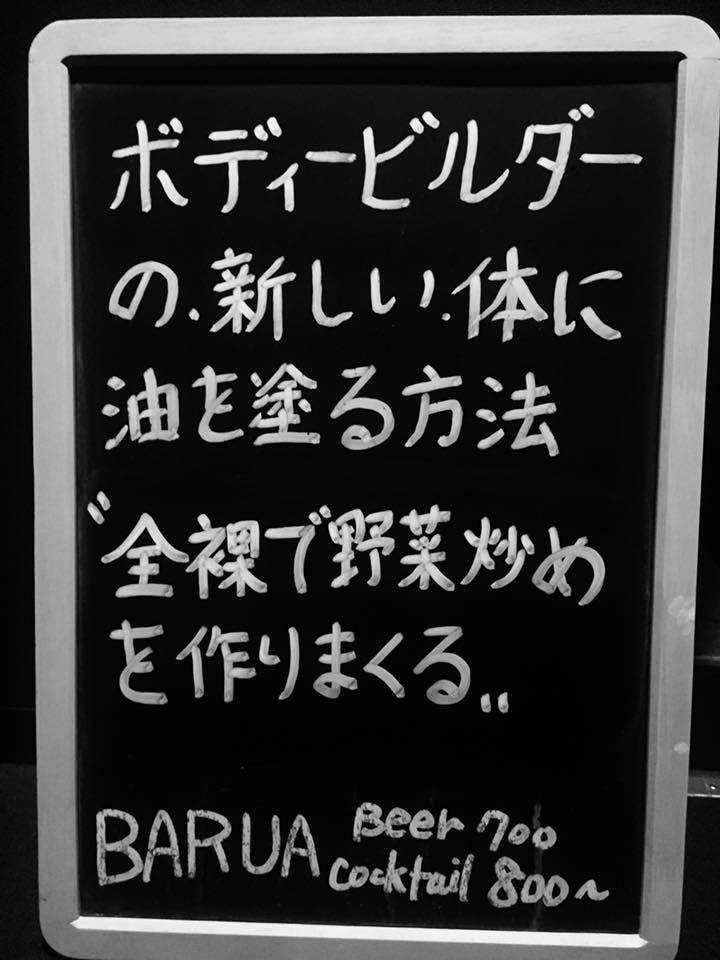 ボディービルダー
の.新しい.体に
油を塗る方法
〝全裸で野菜炒め
を作りまくる〟
BARUA Beer 700
Cocktail 800〜